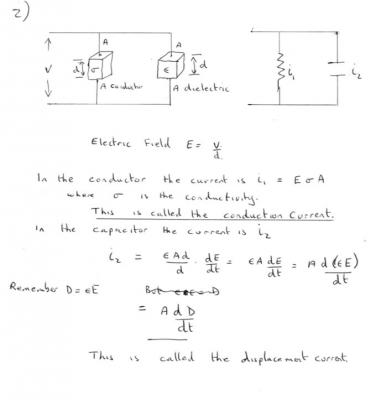 2)
A A
V d σ ε d i₁ i₂
A conductor A dielectric
Electric Field E = V/d
In the conductor the current is i₁ = E σ A
where σ is the conductivity.
This is called the conduction current.
In the capacitor the current is i₂
i₂ = εAd/d . dE/dt = εA dE/dt = A d(εE)/dt
Remember D = εE
= A dD/dt
This is called the displacement current.